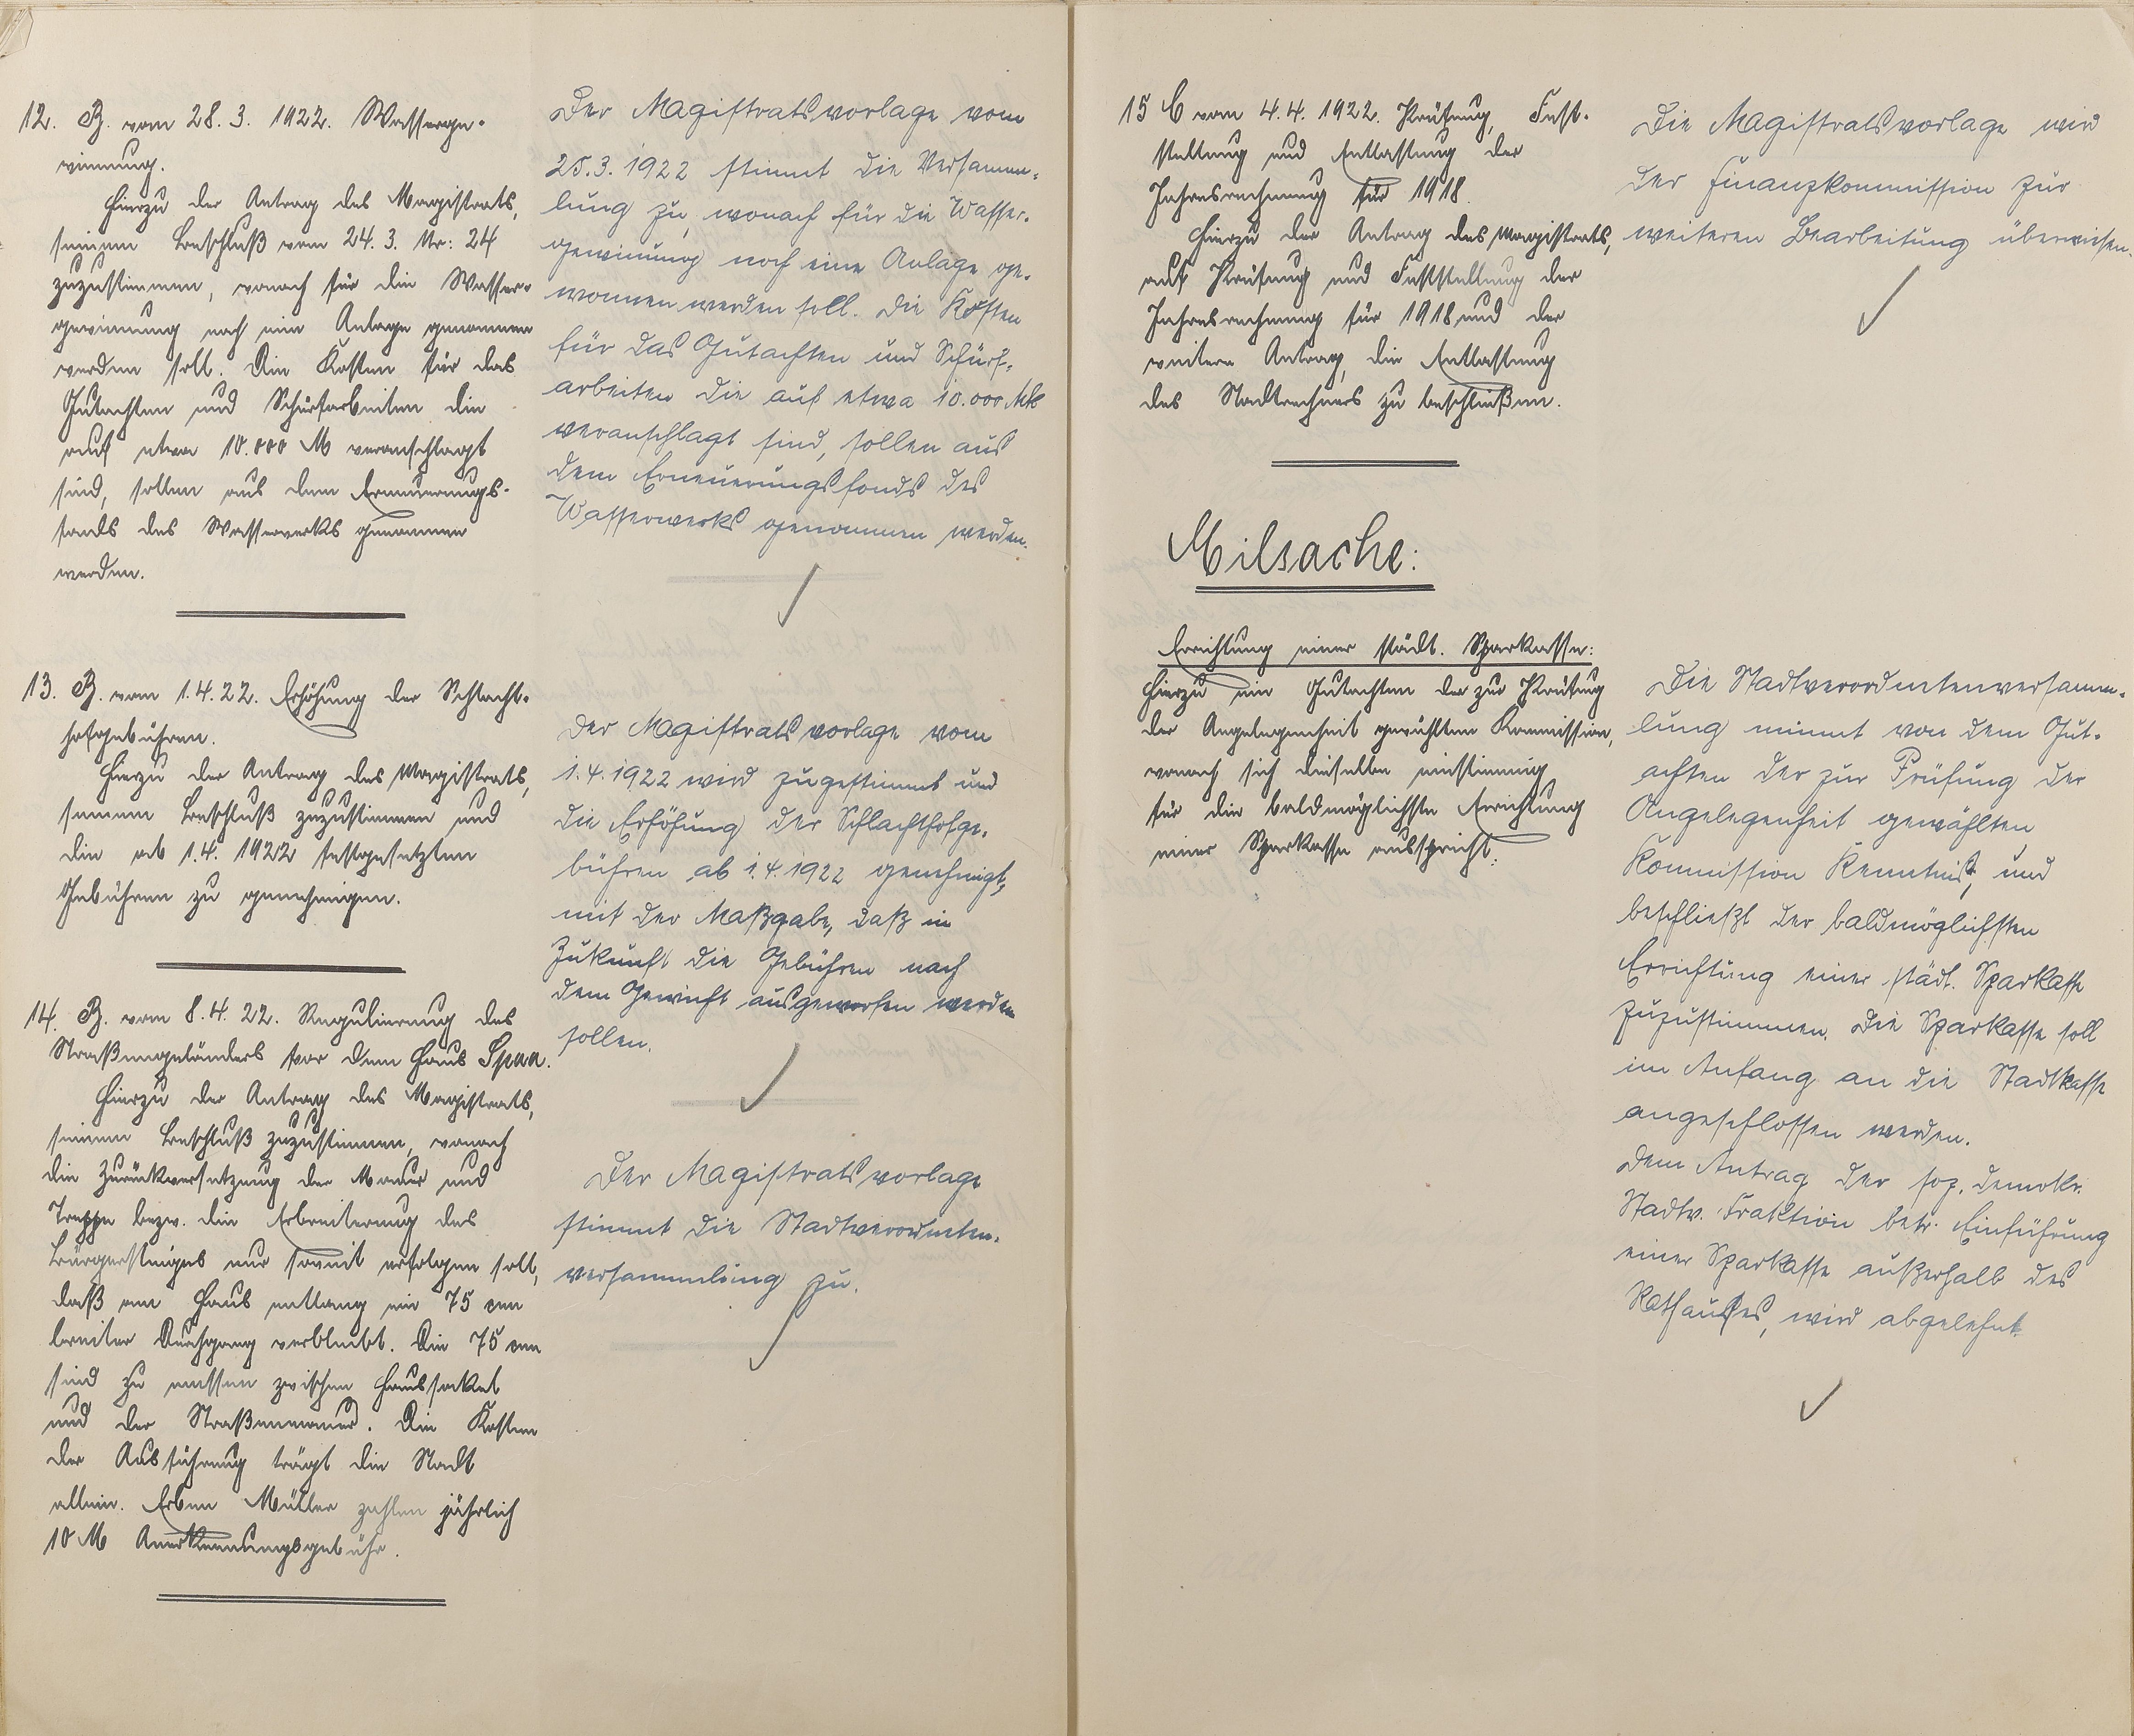 12. B. vom 28.3.1922. Wasserge-
winnung.
Hierzu der Antrag des Magistrats,
seinem Beschluß vom 24.3. Nr: 24
zuzustimmen, wonach für die Wasser-
gewinnung noch eine Anlage genommen
werden soll. Die Kosten für das
Gutachten und Schürfarbeiten die
auf etwa 10.000 M veranschlagt
sind, sollen aus dem Erneuerungs-
fonds des Wasserwerks genommen
werden.
Der Magistratsvorlage vom
25.3.1922 stimmt die Versamm-
lung zu, wonach für die Wasser-
gewinnung noch eine Anlage ge-
wonnen werden soll. Die Kosten
für das Gutachten und Schürf-
arbeiten die auf etwa 10.000 Mk
veranschlagt sind, sollen aus
dem Erneuerungsfonds des
Wasserwerks genommen werden.
13. B. vom 1.4.22. Erhöhung der Schlacht-
hofgebühren.
Hierzu der Antrag des Magistrats,
seinem Beschluß zuzustimmen und
die ab 1.4.1922 festgesetzten
Gebühren zu genehmigen.
Der Magistratsvorlage vom
1.4.1922 wird zugestimmt und
die Erhöhung der Schlachthofge-
bühren ab 1.4.1922 genehmigt,
mit der Maßgabe, daß in
Zukunft die Gebühren nach
dem Gewicht ausgeworfen werden
sollen.
14. B. vom 8.4.22. Regulierung des
Straßengeländers vor dem Haus Spaa.
Hierzu der Antrag des Magistrats,
seinem Beschluß zuzustimmen, wonach
die Zurückversetzung der Mauer und
Treppe bezw. die Erbreiterung des
Bürgersteiges nur soweit erfolgen soll,
daß am Haus entlang ein 75 cm
breiter Durchgang verbleibt. Die 75 cm
sind zu messen zwischen Haussockel
und der Straßenmauer. Die Kosten
der Ausführung trägt die Stadt
allein. Erben Müller zahlen jährlich
10 M Anerkennungsgebühr.
Der Magistratsvorlage
stimmt die Stadtverordneten-
versammlung zu.
15 C vom 4.4.1922. Prüfung, Fest-
stellung und Entlastung der
Jahresrechnung für 1918.
Hierzu der Antrag des Magistrats,
auf Prüfung und Feststellung der
Jahresrechnung für 1918 und der
weitere Antrag, die Entlastung
des Stadtrechners zu beschließen.
Die Magistratsvorlage wird
der Finanzkommission zur
weiteren Bearbeitung überwiesen.
Milsache:
Errichtung einer städt. Sparkasse:
Hierzu ein Gutachten der zur Prüfung
der Angelegenheit gewählten Kommission,
wonach sich dieselbe einstimmig
für die baldmöglichste Errichtung
einer Sparkasse ausspricht.
Die Stadtverordnetenversamm-
lung nimmt von dem Gut-
achten der zur Prüfung der
Angelegenheit gewählten
Kommission Kenntnis, und
beschließt der baldmöglichsten
Errichtung einer städt. Sparkasse
zuzustimmen. Die Sparkasse soll
im Anfang an die Stadtkasse
angeschlossen werden.
Dem Antrag der soz. demokr.
Stadtv. Fraktion betr. Einführung
einer Sparkasse außerhalb des
Rathauses, wird abgelehnt.